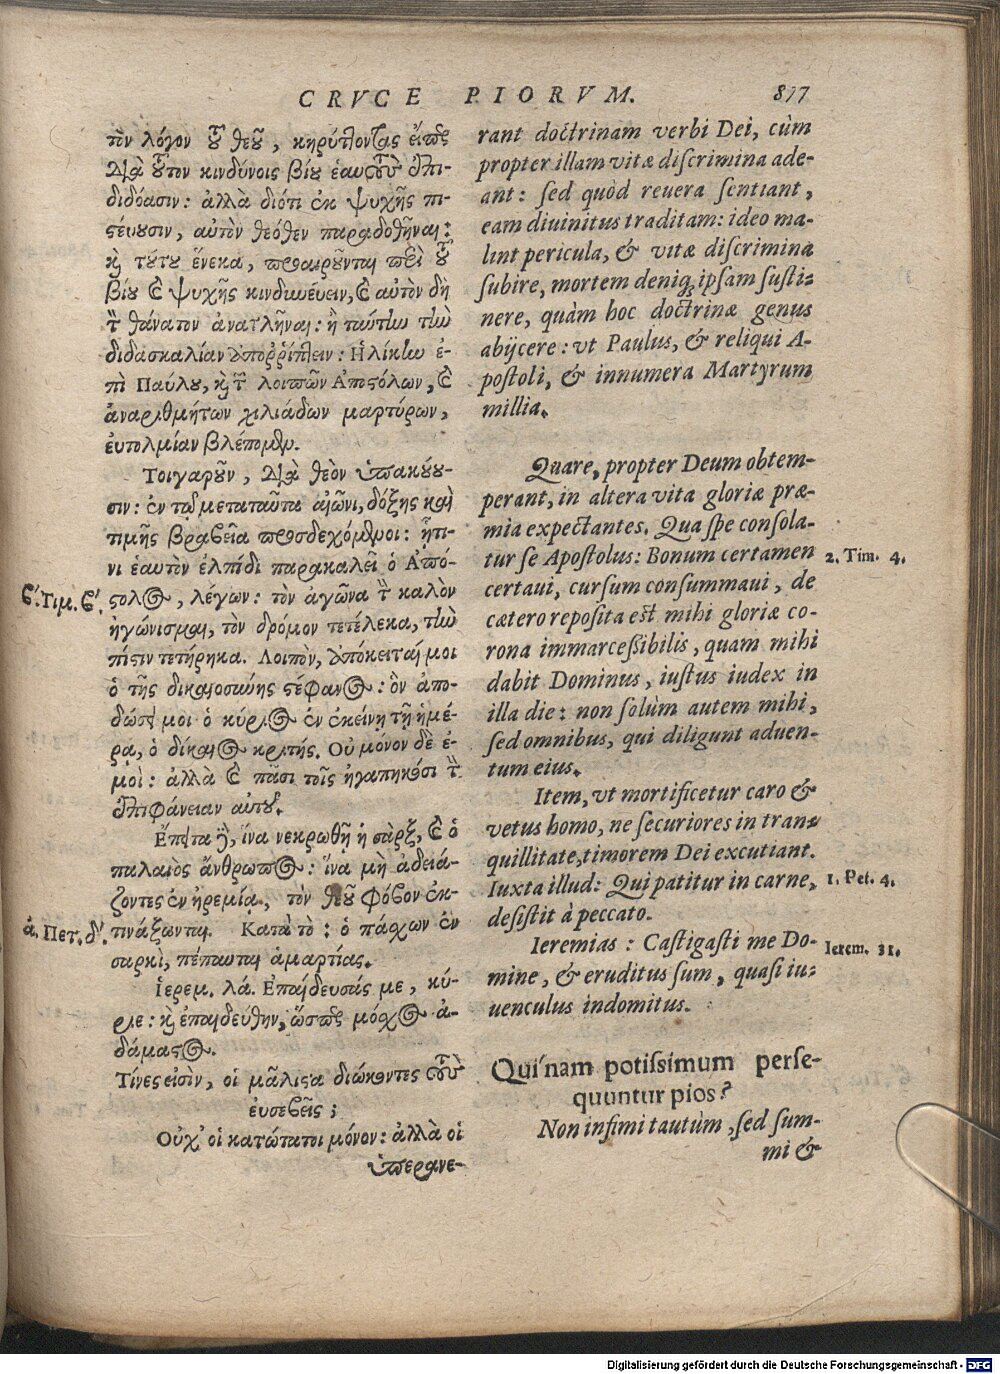 CRVCE PIORVM. 817
τὸν λόγον τοῦ θεοῦ, κηρύττοντας εἴπερ
διὰ τοῦτον κινδύνοις βίου ἑαυτοὺς ἐπι-
διδόασιν: ἀλλὰ διότι ἐκ ψυχῆς πι-
στέυουσιν, αὐτὸν θεόθεν παραδοθῆναι:
καὶ τούτου ἕνεκα, προαιροῦνται περὶ τοῦ
βίου καὶ ψυχῆς κινδυνέυειν, καὶ αὐτὸν δὴ
τὸν θάνατον ἀνατλῆναι: ἢ ταύτην τὴν
διδασκαλίαν ἀποῤῥίπτειν: Ἡλίκην ἐ-
πὶ Παύλου, καὶ τῶν λοιπῶν Ἀποστόλων, καὶ
ἀναριθμήτων χιλιάδων μαρτύρων,
ἐυτολμίαν βλέπομεν.
Τοιγαροῦν, διὰ θεὸν ὑπακόυου-
σιν: ἐν τῷ μεταταῦτα αἰῶνι, δόξης καὶ
τιμῆς βραβεῖα προσδεχόμενοι: ᾗτι-
νι ἑαυτὸν ἐλπίδι παρακαλεῖ ὁ Ἀπό-
στολος, λέγων: τὸν ἀγῶνα τὸν καλὸν
ἠγώνισμαι, τὸν δρόμον τετέλεκα, τὴν
πίστιν τετήρηκα. Λοιπὸν, ἀπόκειταί μοι
ὁ τῆς δικαιοσύνης στέφανος: ὃν ἀπο-
δώσει μοι ὁ κύριος ἐν ἐκείνῃ τῇ ἡμέ-
ρᾳ, ὁ δίκαιος κριτής. Οὐ μόνον δὲ ἐ-
μοὶ: ἀλλὰ καὶ πᾶσι τοῖς ἠγαπηκόσι τὴν
ἐπιφάνειαν αὐτοῦ.
Ἔπειτα δὲ, ἵνα νεκρωθῇ ἡ σὰρξ, καὶ ὁ
παλαιὸς ἄνθρωπος: ἵνα μὴ ἀδειά-
ζοντες ἐν ἠρεμίᾳ, τὸν θεοῦ φόβον ἐκ-
τινάξωνται. Κατὰ τὸ: ὁ πάσχων ἐν
σαρκὶ, πέπαυται ἁμαρτίας.
Ἱερεμ. λά. Ἐπαίδευσάς με, κύ-
ριε: καὶ ἐπαιδεύθην, ὥσπερ μόσχος ἀ-
δάμαστος.
Τίνες εἰσὶν, οἱ μᾶλιστα διώκοντες τοὺς
ἐυσεβεῖς;
Οὐχ' οἱ κατώτατοι μόνον: ἀλλὰ οἱ
ὑπερανε-
ϛ΄. Τιμ. ϛ΄.
ά. Πετ. δ΄.
rant doctrinam verbi Dei, cùm
propter illam vitæ discrimina ade-
ant: sed quòd reuera sentiant,
eam diuinitus traditam: ideo ma-
lint pericula, & vitæ discrimina
subire, mortem deniq; ipsam susti-
nere, quàm hoc doctrinæ genus
abijcere: vt Paulus, & reliqui A-
postoli, & innumera Martyrum
millia.
Quare, propter Deum obtem-
perant, in altera vita gloriæ præ-
mia expectantes. Qua spe consola-
tur se Apostolus: Bonum certamen
certaui, cursum consummaui, de
cætero reposita est mihi gloriæ co-
rona immarcessibilis, quam mihi
dabit Dominus, iustus iudex in
illa die: non solùm autem mihi,
sed omnibus, qui diligunt aduen-
tum eius.
Item, vt mortificetur caro &
vetus homo, ne securiores in tran-
quillitate, timorem Dei excutiant.
Iuxta illud: Qui patitur in carne,
desistit à peccato.
Ieremias: Castigasti me Do-
mine, & eruditus sum, quasi iu-
uenculus indomitus.
Qui'nam potissimum perse-
quuntur pios?
Non infimi tautùm, sed sum-
mi &
2. Tim. 4.
1. Pet. 4.
Ierem. 31.
Digitalisierung gefördert durch die Deutsche Forschungsgemeinschaft - DFG